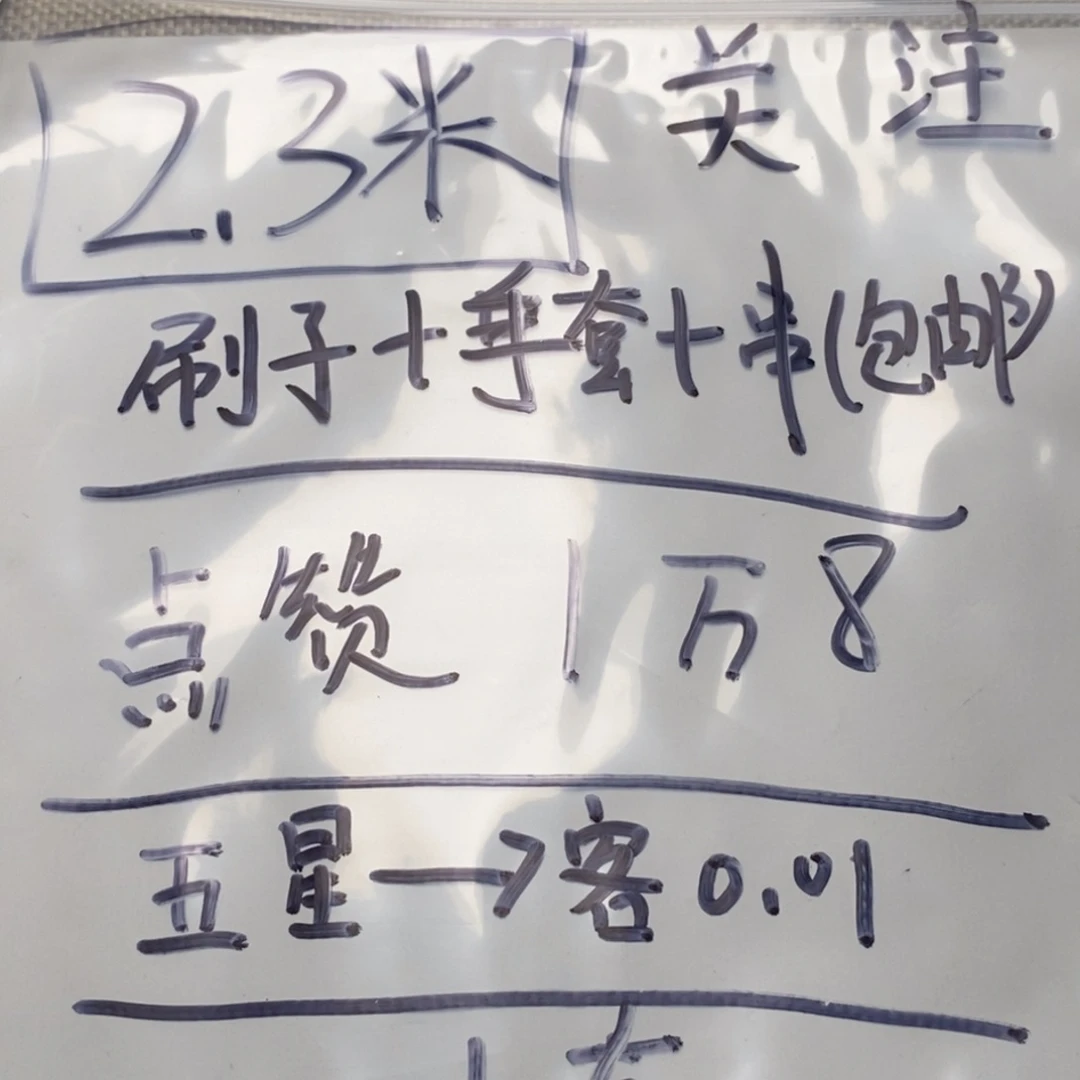 2.3米 关注
刷子+手套+串(包邮)
点赞 1万8
五星→客0.01